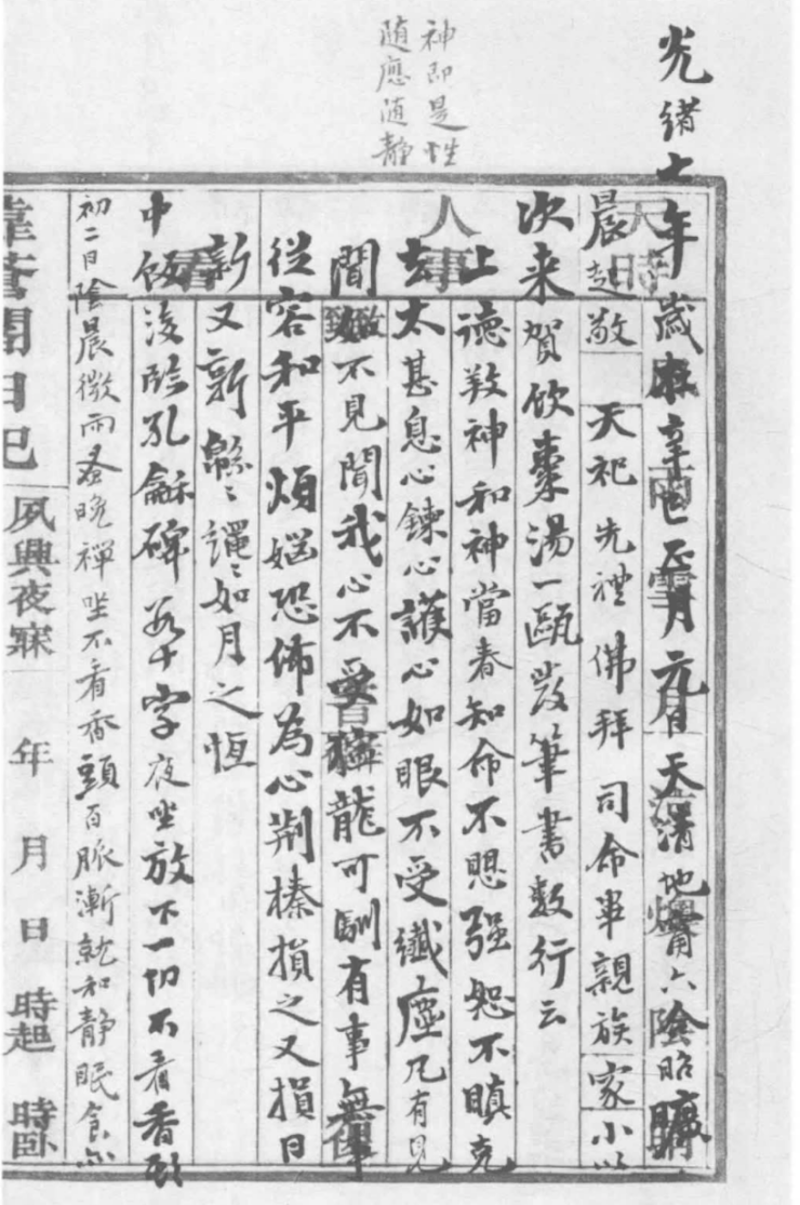 神即是性
随應随静
光緒七年歲在辛巳正月元日天清地甯六陰昭曠
天時
晨起敬 天祀先禮佛拜 司命畢親族家小以
次来賀飲棗湯一甌發筆書數行云
人事
上德敦神和神當春知命不思强恕不瞋克
去太甚息心鍊心護心如眼不受纖塵凡有見
聞如不見聞我心不受獰龍可馴有事無事
從容和平煩惱恐怖為心荆榛損之又損日
新又新緜〻繩〻如月之恒
中飯後臨孔龢碑若干字夜坐放下一切不看香頭
初二日陰晨微雨蚤晚禪坐不看香頭百脈漸就和静眠食亦
日記 夙興夜寐 年 月 日 時起 時臥